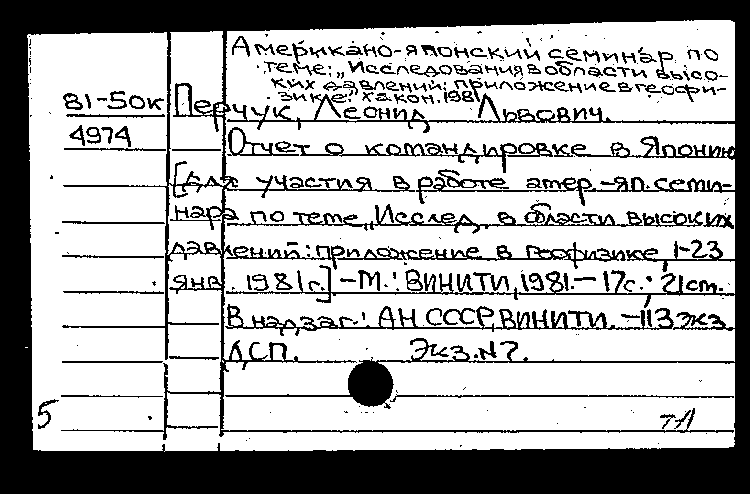 Американо-японский семинар по
теме: „Исследования в области высо-
ких давлений: приложение в геофи-
зике". Хакон. 1981
81-50к Перчук, Леонид Львович.
4974 Отчет о командировке в Японию
[для участия в работе амер.-яп. семи-
нара по теме „Исслед. в области высоких
давлений: приложение в геофизике, 1-23
янв. 1981г.] -М.: ВИНИТИ, 1981.-17с.; 21см.
В надзаг.: АН СССР, ВИНИТИ. -113экз.
ДСП. Экз.N7.
5 тА